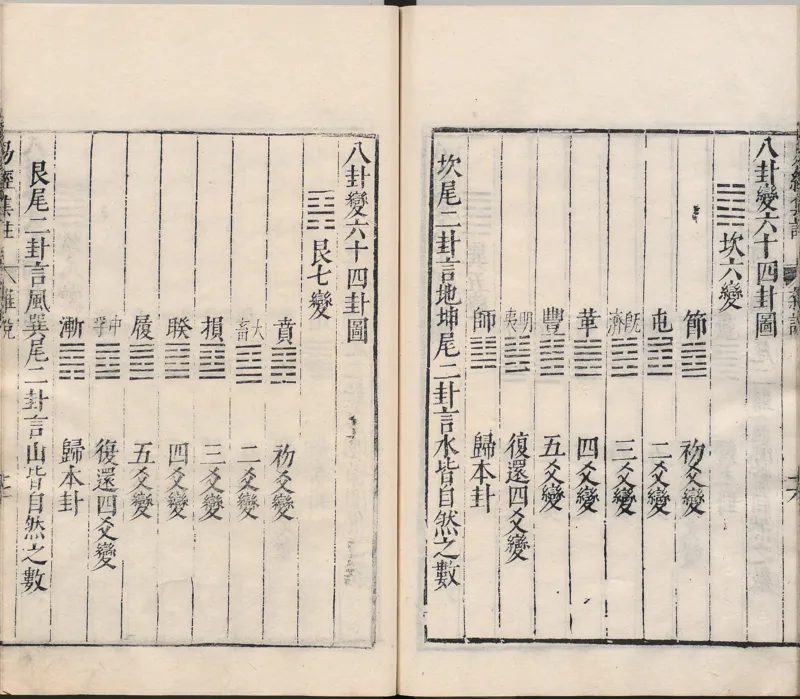 八卦變六十四卦圖
坎六變
節 初爻變
屯 二爻變
既濟 三爻變
革 四爻變
豐 五爻變
明夷 復還四爻變
師 歸本卦
坎尾二卦言地坤尾二卦言水皆自然之數
八卦變六十四卦圖
艮七變
賁 初爻變
大畜 二爻變
損 三爻變
睽 四爻變
履 五爻變
中孚 復還四爻變
漸 歸本卦
艮尾二卦言風巽尾二卦言山皆自然之數
易經集註